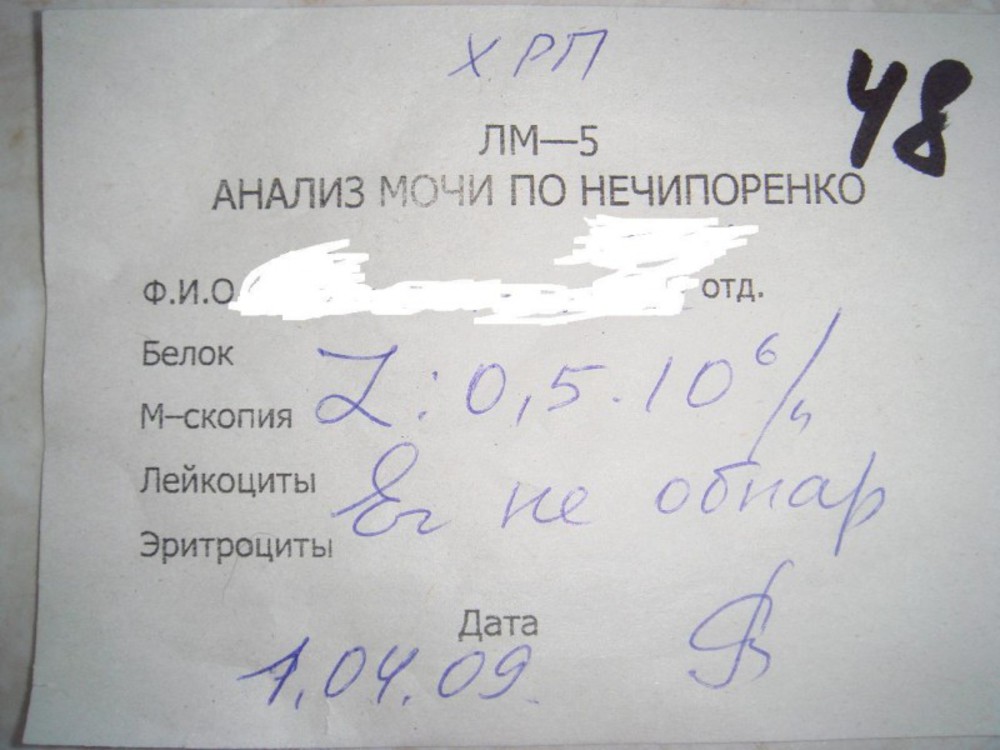 ХРП
48
ЛМ—5
АНАЛИЗ МОЧИ ПО НЕЧИПОРЕНКО
Ф.И.О. отд.
Белок
L: 0,5·10⁶/л
М–скопия
Лейкоциты
Er не обнар
Эритроциты
Дата
1.04.09.